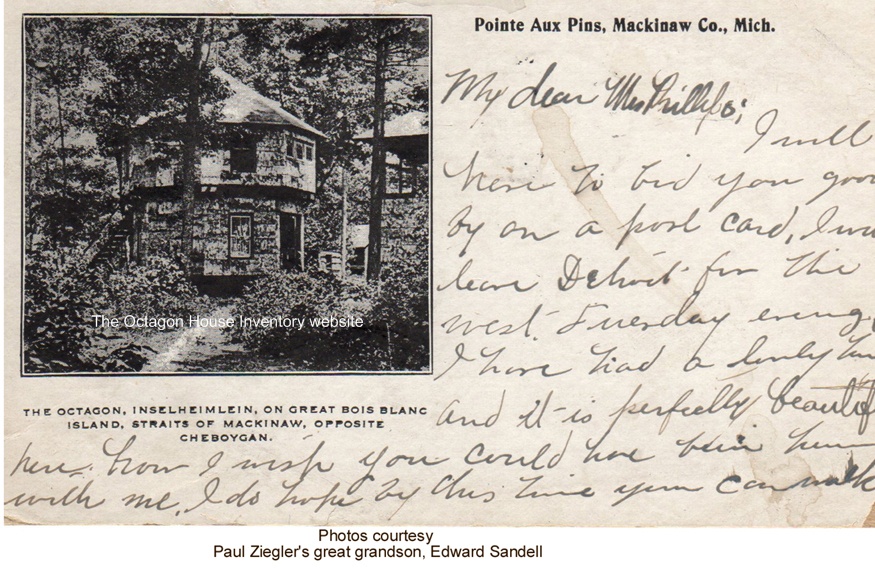 Pointe Aux Pins, Mackinaw Co., Mich.
My dear Mrs Phillips;
I will
have to bid you good
by on a post card, I
leave Detroit for the
west Tuesday evening
I have had a lovely
and it is perfectly beautif
here. how I wish you could have been here
with me. I do hope by this time you can walk
The Octagon House Inventory website
THE OCTAGON, INSELHEIMLEIN, ON GREAT BOIS BLANC
ISLAND, STRAITS OF MACKINAW, OPPOSITE
CHEBOYGAN.
Photos courtesy
Paul Ziegler's great grandson, Edward Sandell